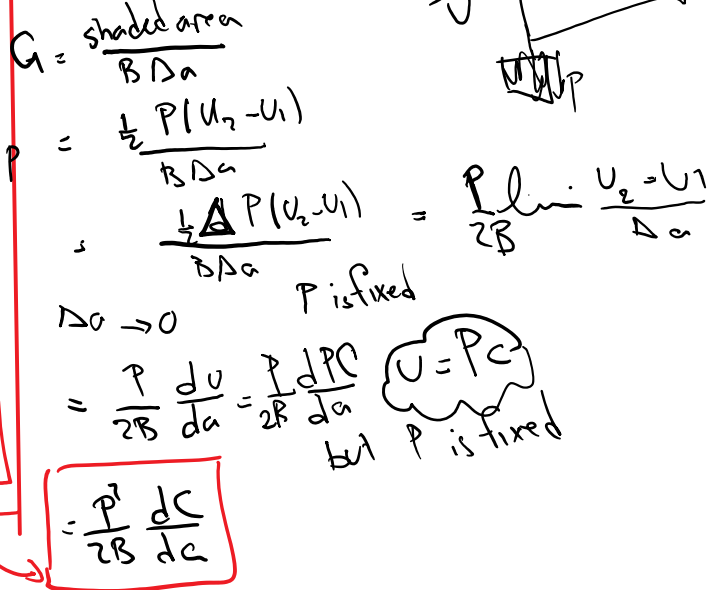 U
P
G = shaded area / B Δa
P = ½ P(U₂-U₁) / B Δa
½ Δ P(U₂-U₁) / B Δa = P/2B lim U₂-U1 / Δa
Δa → 0
P is fixed
= P/2B dU/da = P/2B dPC/da
U = PC
but P is fixed
= P²/2B dC/da